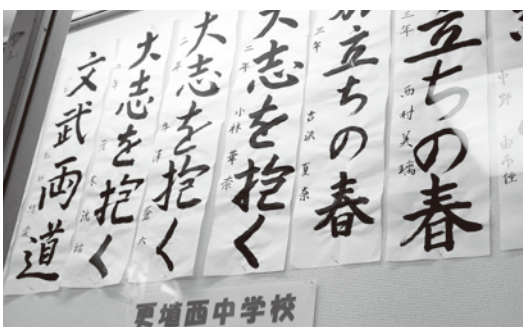 立ちの春
三年 西村美璃
立ちの春
三年 古沢夏奈
大志を抱く
二年 小林華奈
大志を抱く
二年
大志を抱く
二年
文武両道
更埴西中学校